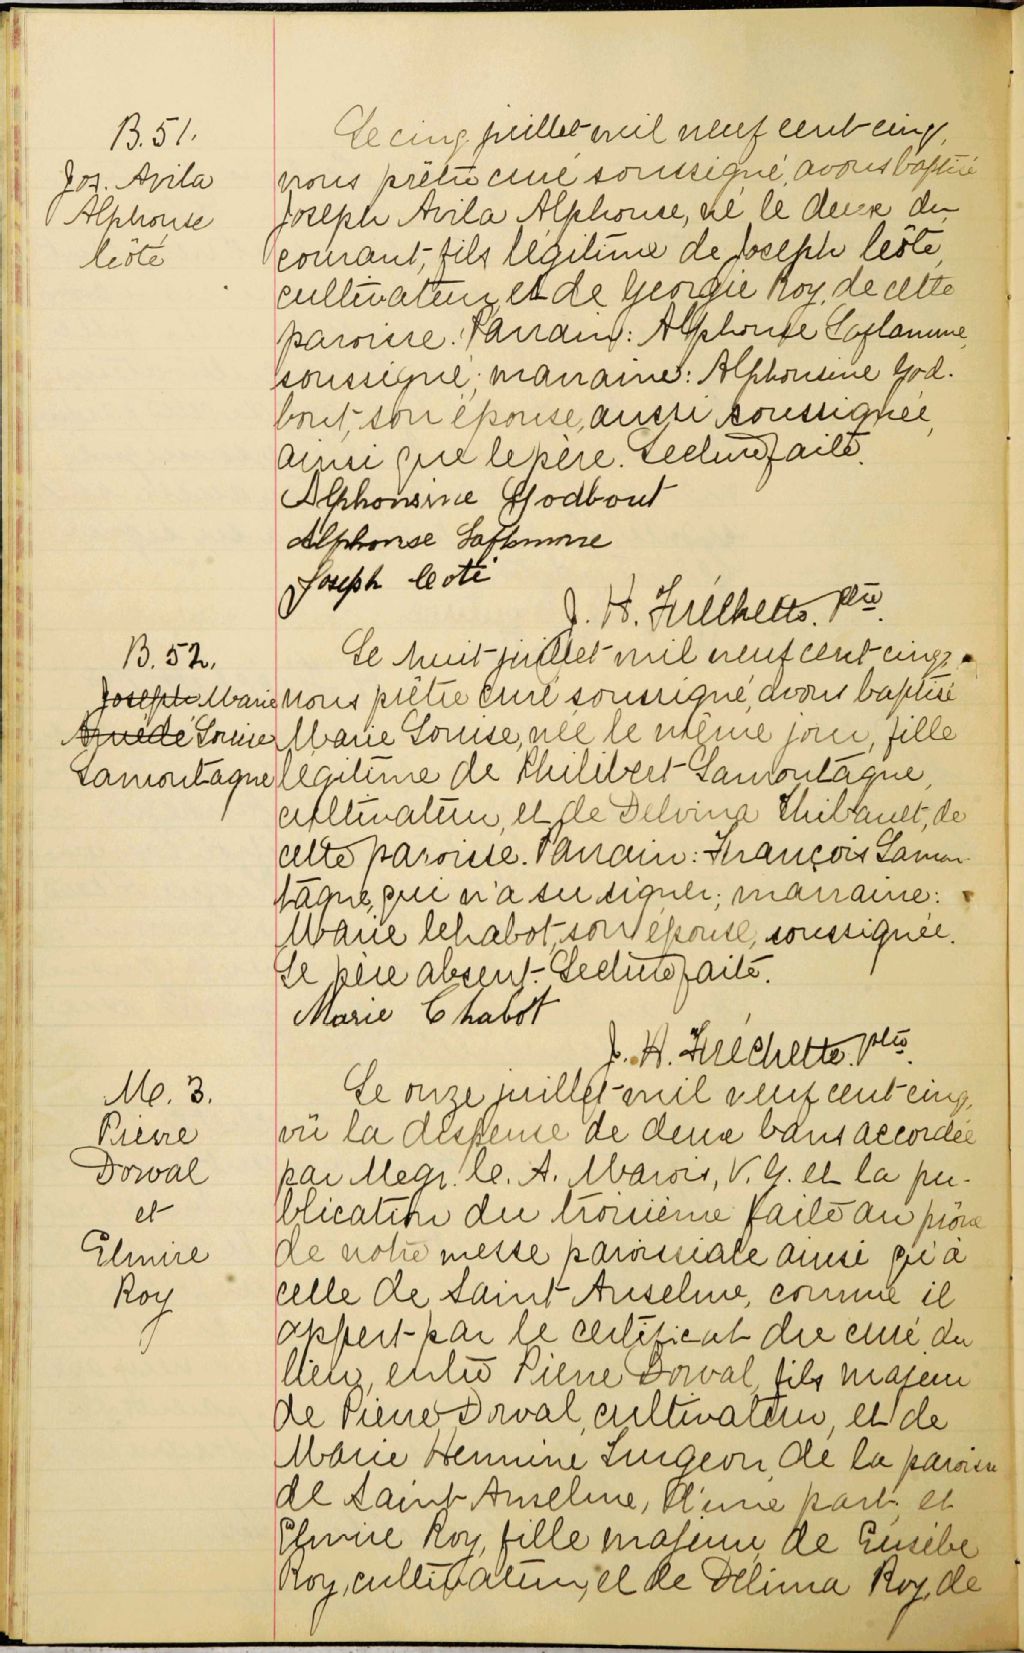 B. 51.
Jos. Avila
Alphonse
Côté
Le cinq juillet mil neuf cent cinq,
nous prêtre curé soussigné, avons baptisé
Joseph Avila Alphonse, né le deux du
courant, fils légitime de Joseph Côté,
cultivateur, et de Georgie Roy, de cette
paroisse. Parrain: Alphonse Laflamme,
soussigné; marraine: Alphonsine God-
bout, son épouse, aussi soussignée,
ainsi que le père. Lecture faite.
Alphonsine Godbout
Alphonse Laflamme
Joseph Coté
J. H. Fréchette. Ptre.
B. 52.
Joseph Marie
Azuédé Louise
Lamontagne
Le huit juillet mil neuf cent cinq,
nous prêtre curé soussigné, avons baptisé
Marie Louise, née le même jour, fille
légitime de Philibert Lamontagne,
cultivateur, et de Delvina Thibault, de
cette paroisse. Parrain: François Lamon-
tagne, qui n'a su signer; marraine:
Marie Chabot, son épouse, soussignée.
Le père absent. Lecture faite.
Marie Chabot
J. H. Fréchette. Ptre.
M. 3.
Pierre
Dorval
et
Elmire
Roy
Le onze juillet mil neuf cent cinq,
vû la dispense de deux bans accordée
par Mgr. C. A. Marois, V. G. et la pu-
blication du troisième faite au prône
de notre messe paroissiale ainsi qu'à
celle de Saint Anselme, comme il
appert par le certificat du curé du
lieu, entre Pierre Dorval, fils majeur
de Pierre Dorval, cultivateur, et de
Marie Hermine Turgeon, de la paroisse
de Saint Anselme, d'une part, et
Elmire Roy, fille majeure de Eusèbe
Roy, cultivateur, et de Délima Roy, de